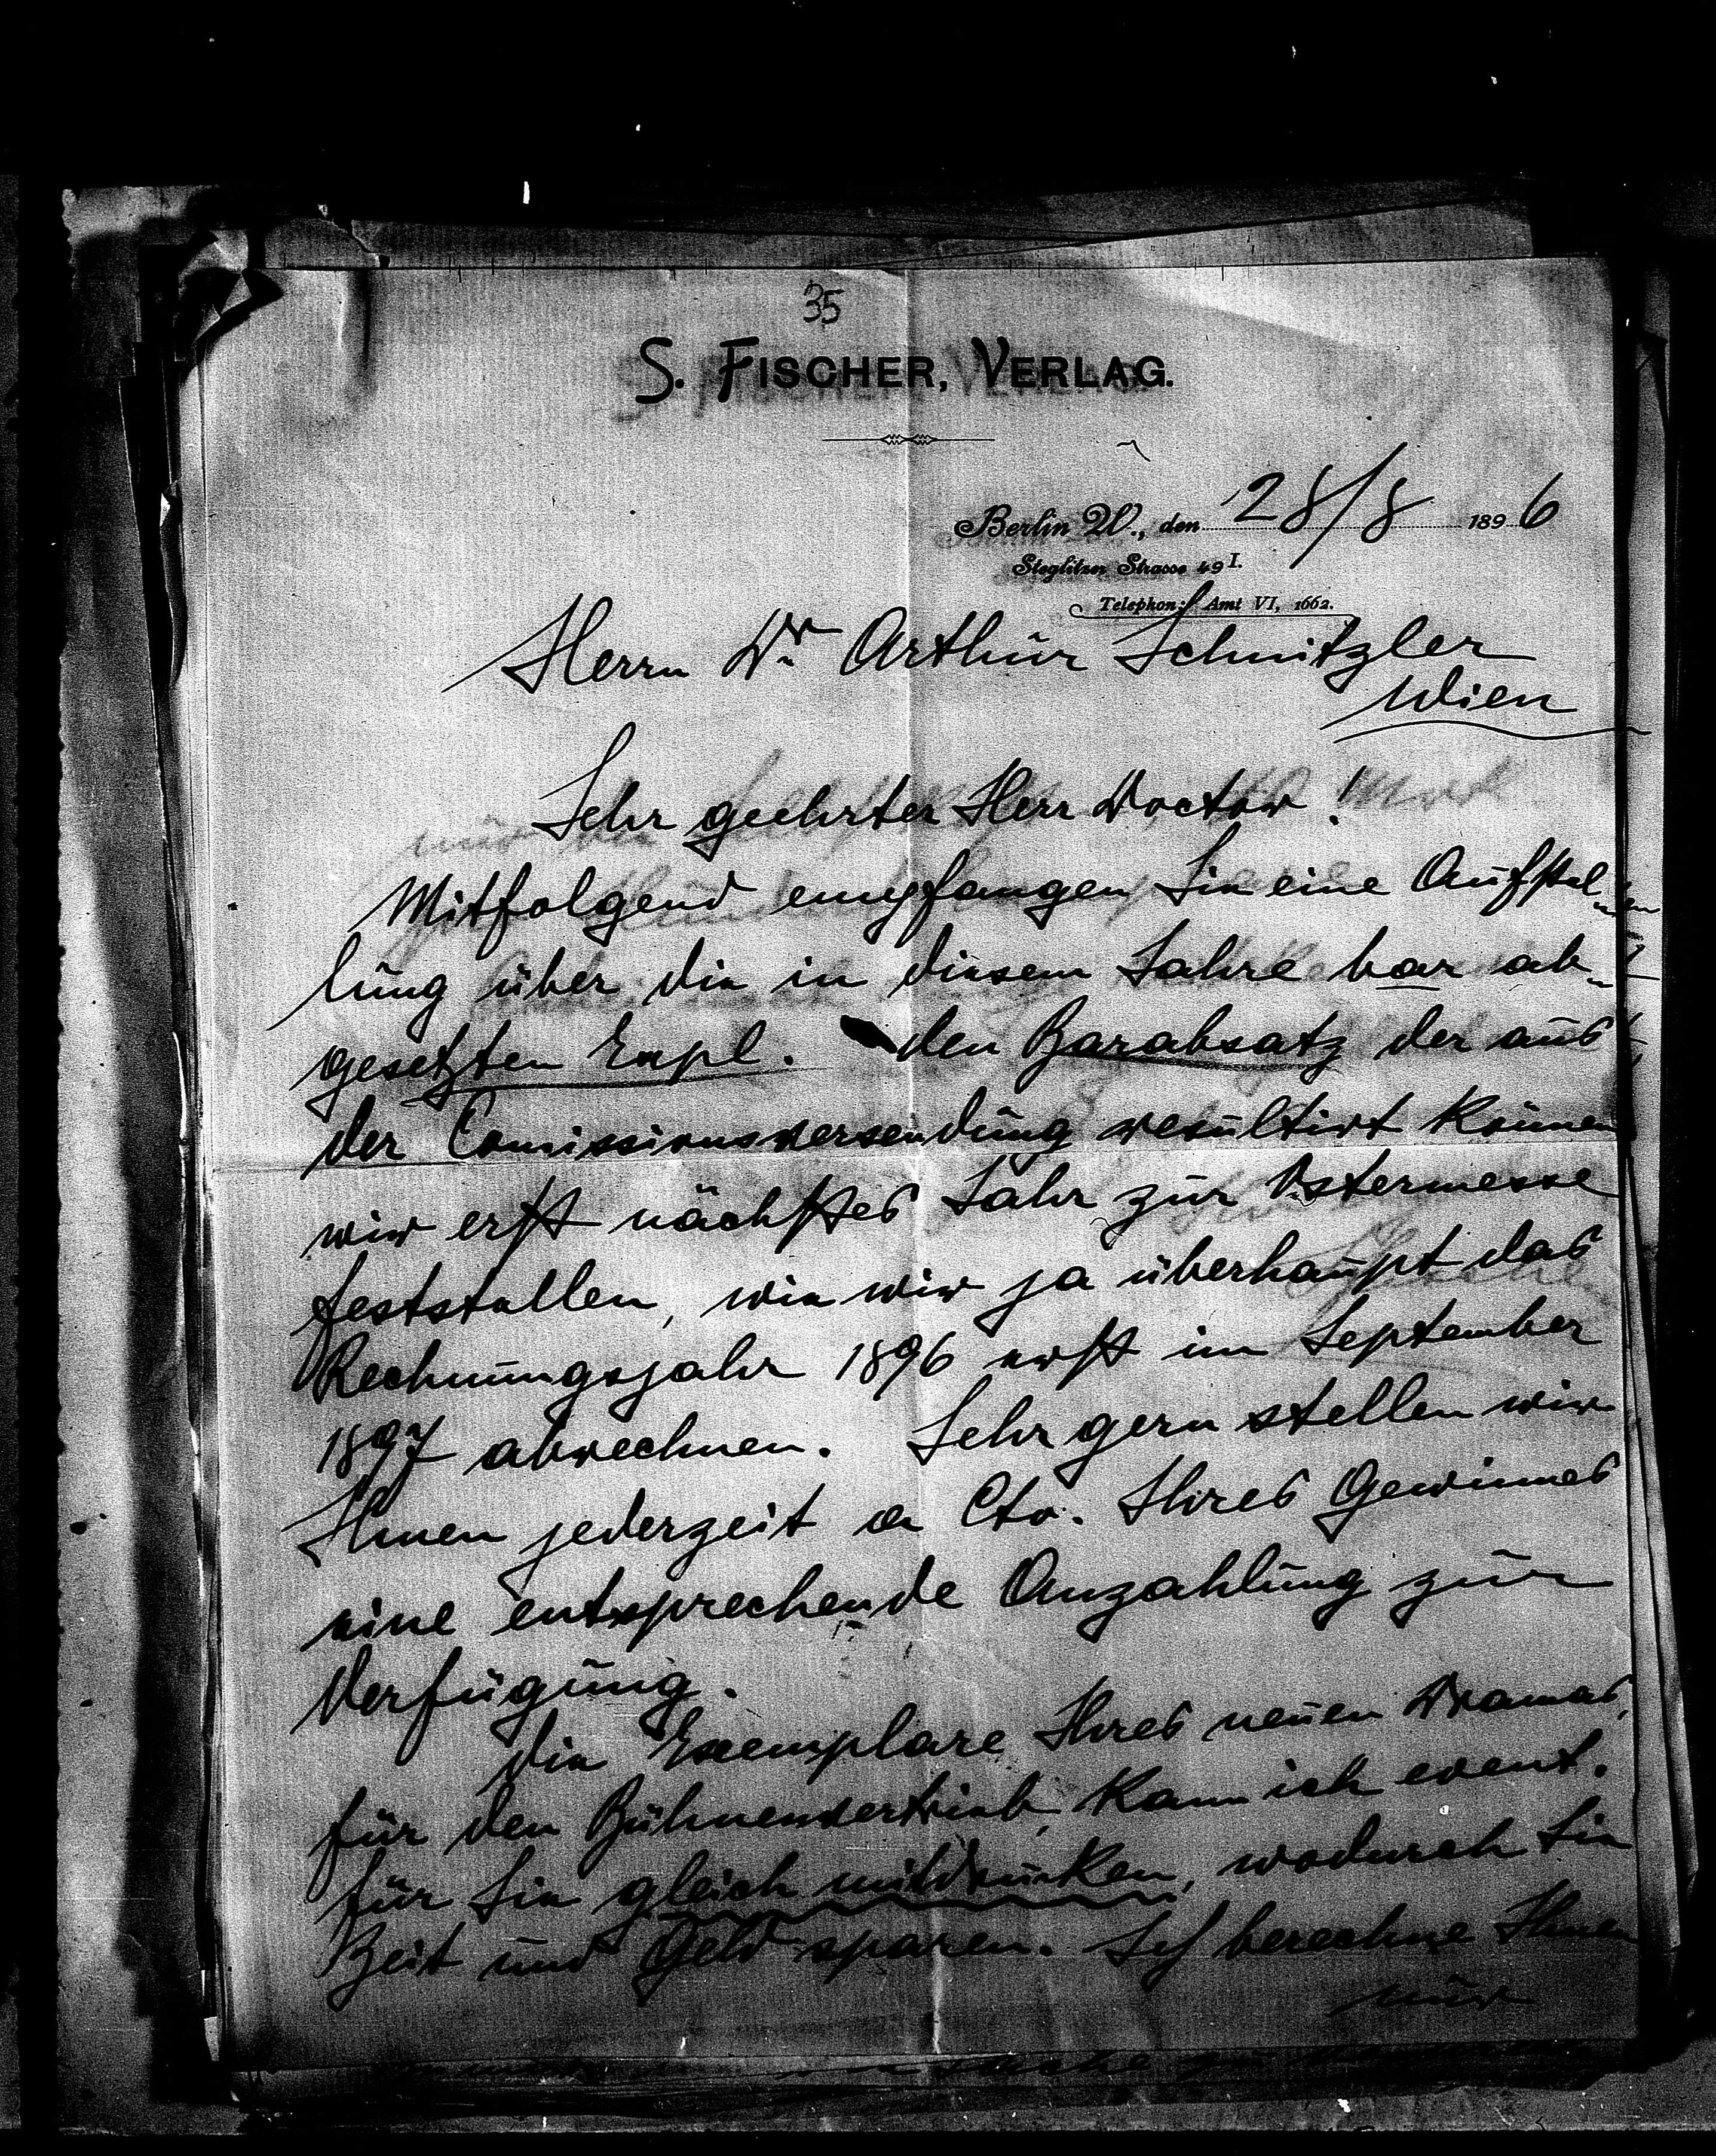 35
S. FISCHER, VERLAG.
Berlin W., den 28/8 1896
Steglitzer Strasse 49 I.
Telephon: Amt VI, 1662.
Herrn Dr. Arthur Schnitzler
Wien
Sehr geehrter Herr Doctor!
Mitfolgend empfangen Sie eine Aufstel-
lung über die in diesem Jahre bar ab-
gesetzten Expl. den Barabsatz der aus
der Comissionsversendung resultirt können
wir erst nächstes Jahr zur Ostermesse
feststellen, wie wir ja überhaupt das
Rechnungsjahr 1896 erst im September
1897 abrechnen. Sehr gern stellen wir
Ihnen jederzeit a Cto. Ihres Gewinnes
eine entsprechende Anzahlung zur
Verfügung.
Die Exemplare Ihres neuen Dramas,
für den Bühnenvertrieb, kann ich event.
für Sie gleich mitdrucken, wodurch Sie
Zeit und Geld sparen. Ich berechne Ihnen
nur